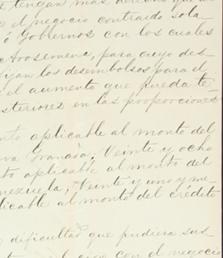 tengan mas derecho que a
o el negocio contraido sola-
ó Gobiernos con los cuales
Arosemena, para cuyo des-
ijan los desembolsos para el
el aumento que pueda te-
steriores en las proporciones
nto aplicable al monto del
va Granada, Veinte y ocho
to aplicable al monto del
nezuela, Veinte y uno y me
licable al monto del crédito
dificultad que pudiera sus-
con el negocio